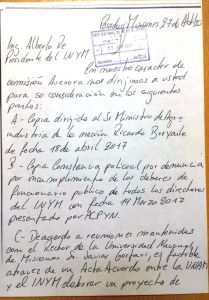 Posadas, Misiones 27 de Abril
Ing. Alberto Re
Presidente del INYM
En nuestro caracter de
comisión Asesora nos dirigimos a usted
para su consideración en los siguientes
puntos:
A - Copia dirigida al Sr Ministro de Agro
industria de la nación Ricardo Buryaile
de fecha 18 de abril 2017
B - Copia Constancia policial por denuncia
por incumplimiento de los deberes de
funcionario publico de todos los directores
del INYM con fecha 14 Marzo 2017
presentado por ACPYN.
C - Deacordo a reuniones mantenidas
con el Rector de la Universidad Nacional
de Misiones Sr. Javier Gortari, es factible
atravez de un Acta Acuerdo entre la UNAM
y el INYM elaborar un proyecto de